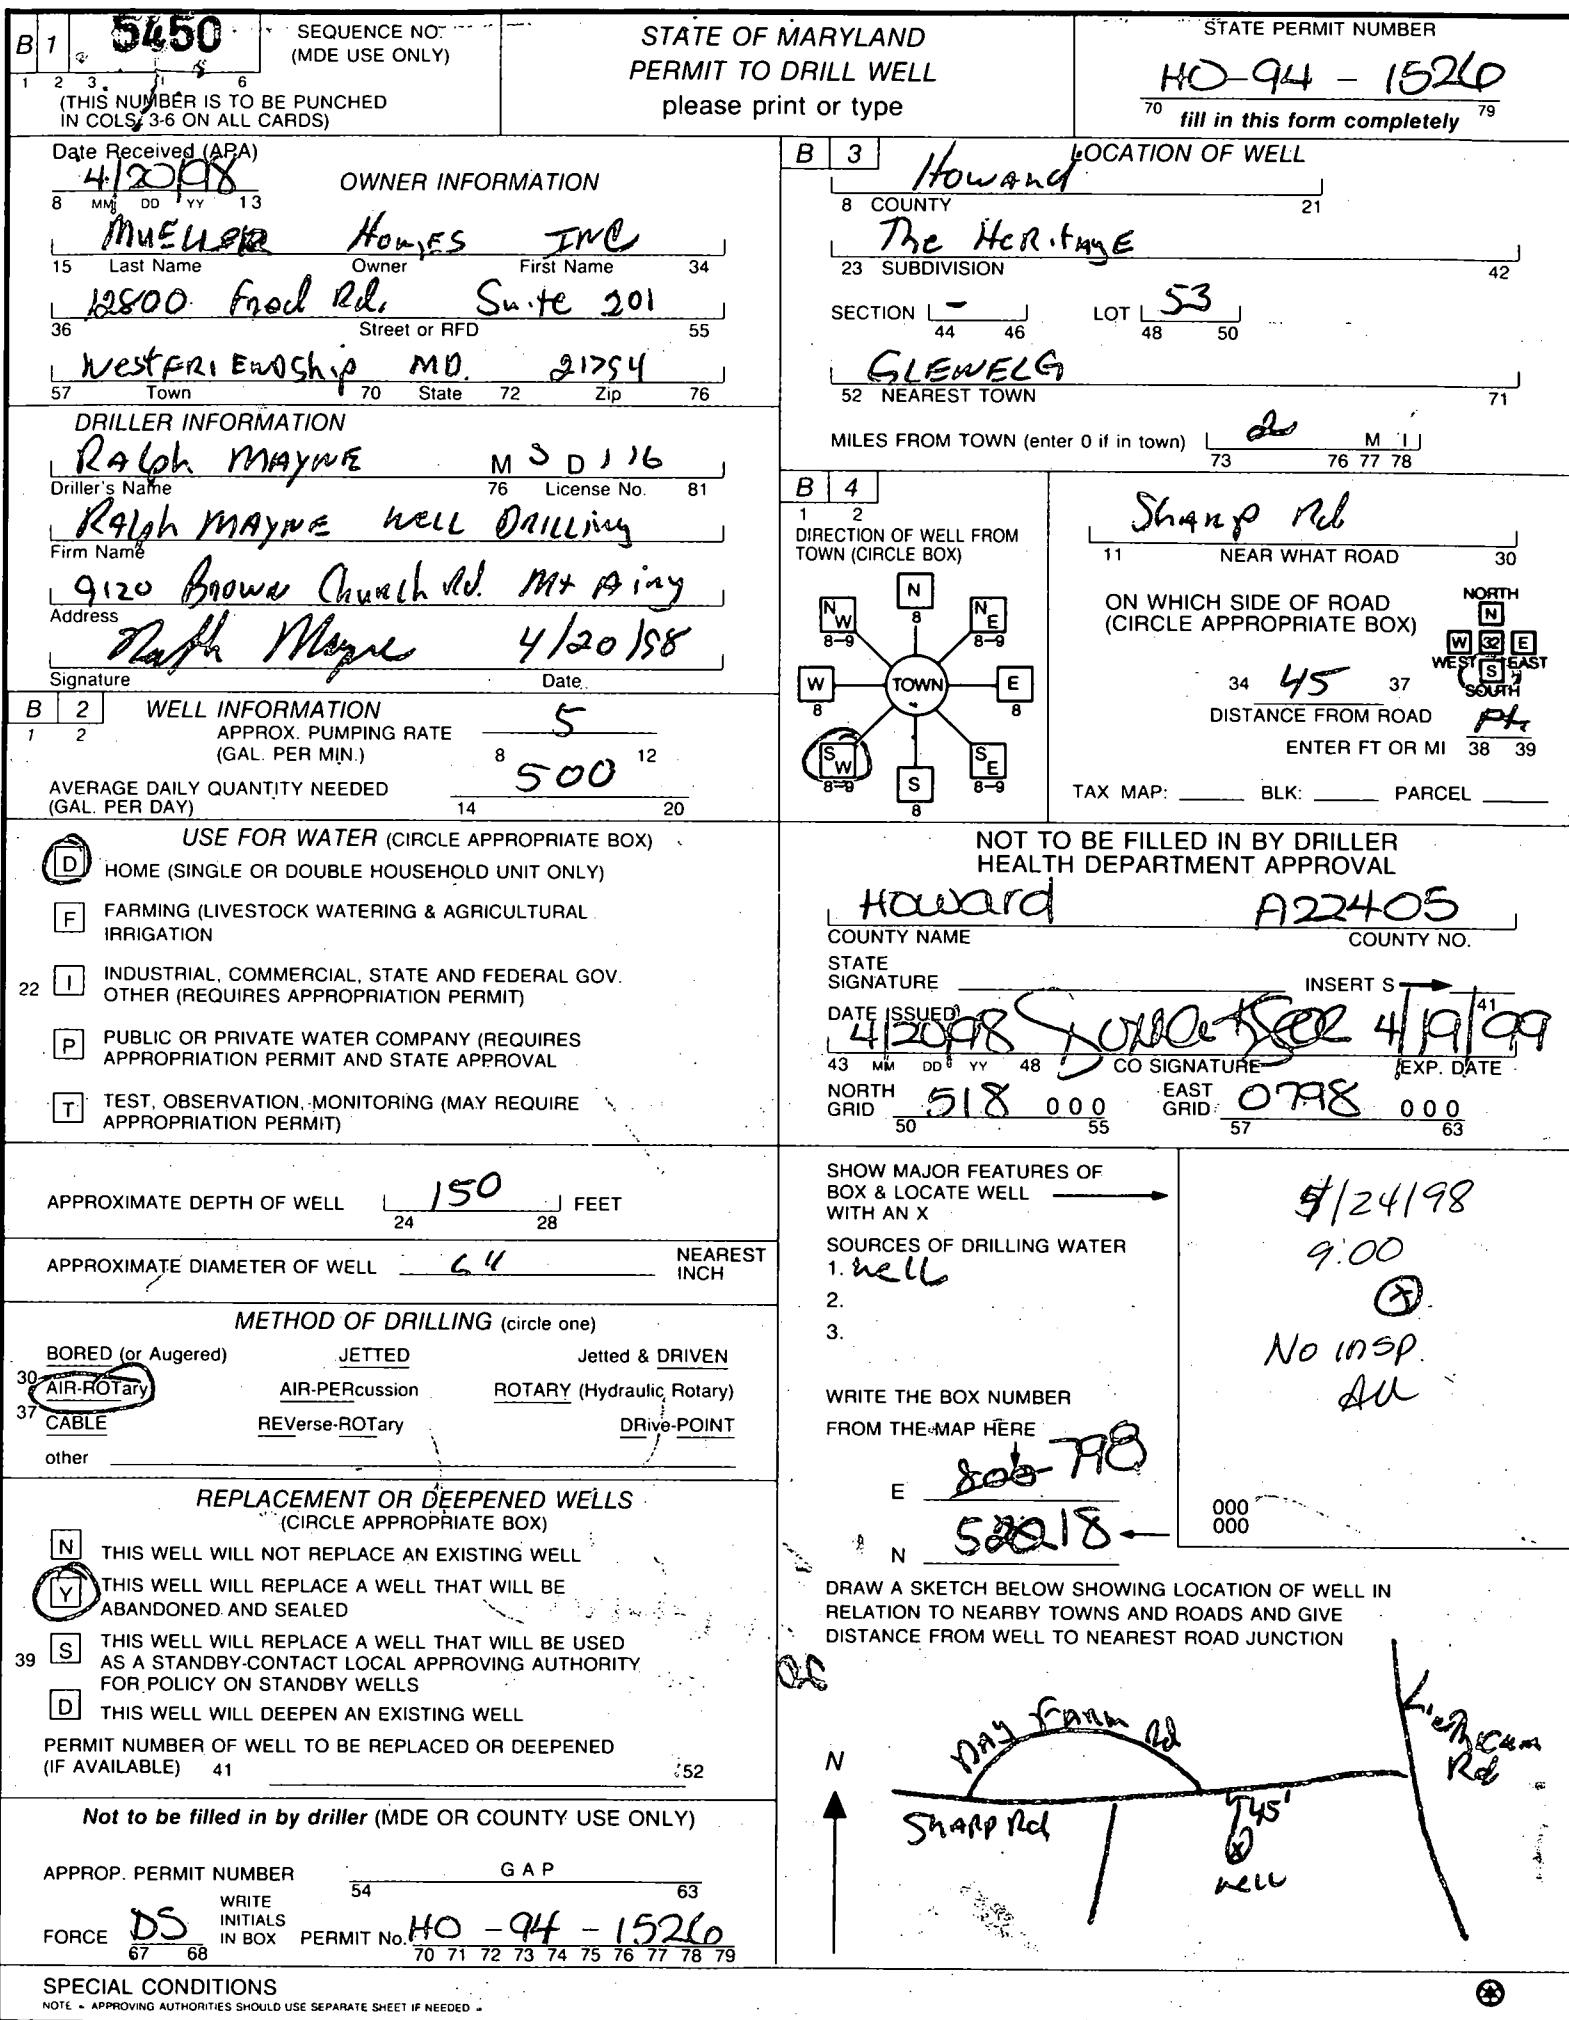 B 1
5450
SEQUENCE NO.
(MDE USE ONLY)
1 2 3 6
(THIS NUMBER IS TO BE PUNCHED
IN COLS. 3-6 ON ALL CARDS)
STATE OF MARYLAND
PERMIT TO DRILL WELL
please print or type
STATE PERMIT NUMBER
HO-94-1526
70 fill in this form completely 79
Date Received (APA)
4/20/98
8 MM DD YY 13
OWNER INFORMATION
MUELLER HOMES INC
15 Last Name Owner First Name 34
12800 Fred Rd. Suite 201
36 Street or RFD 55
West FRIENDShip MD. 21794
57 Town 70 State 72 Zip 76
DRILLER INFORMATION
RAlph MAYNE M S D 116
Driller's Name 76 License No. 81
RAlph MAYNE WELL DRIlling
Firm Name
9120 Brown Church Rd. Mt Airy
Address
Ralph Mayne 4/20/98
Signature Date
B 2 WELL INFORMATION
1 2
APPROX. PUMPING RATE 5
(GAL. PER MIN.) 8 12
AVERAGE DAILY QUANTITY NEEDED 500
(GAL. PER DAY) 14 20
USE FOR WATER (CIRCLE APPROPRIATE BOX)
D HOME (SINGLE OR DOUBLE HOUSEHOLD UNIT ONLY)
F FARMING (LIVESTOCK WATERING & AGRICULTURAL
IRRIGATION
22 I INDUSTRIAL, COMMERCIAL, STATE AND FEDERAL GOV.
OTHER (REQUIRES APPROPRIATION PERMIT)
P PUBLIC OR PRIVATE WATER COMPANY (REQUIRES
APPROPRIATION PERMIT AND STATE APPROVAL
T TEST, OBSERVATION, MONITORING (MAY REQUIRE
APPROPRIATION PERMIT)
APPROXIMATE DEPTH OF WELL 150 FEET
24 28
APPROXIMATE DIAMETER OF WELL 6" NEAREST
INCH
METHOD OF DRILLING (circle one)
BORED (or Augered) JETTED Jetted & DRIVEN
30 AIR-ROTary AIR-PERcussion ROTARY (Hydraulic Rotary)
37 CABLE REVerse-ROTary DRive-POINT
other
REPLACEMENT OR DEEPENED WELLS
(CIRCLE APPROPRIATE BOX)
N THIS WELL WILL NOT REPLACE AN EXISTING WELL
Y THIS WELL WILL REPLACE A WELL THAT WILL BE
ABANDONED AND SEALED
39 S THIS WELL WILL REPLACE A WELL THAT WILL BE USED
AS A STANDBY-CONTACT LOCAL APPROVING AUTHORITY
FOR POLICY ON STANDBY WELLS
D THIS WELL WILL DEEPEN AN EXISTING WELL
PERMIT NUMBER OF WELL TO BE REPLACED OR DEEPENED
(IF AVAILABLE) 41 52
Not to be filled in by driller (MDE OR COUNTY USE ONLY)
APPROP. PERMIT NUMBER G A P
54 63
FORCE DS WRITE INITIALS IN BOX PERMIT No. HO-94-1526
67 68 70 71 72 73 74 75 76 77 78 79
SPECIAL CONDITIONS
NOTE - APPROVING AUTHORITIES SHOULD USE SEPARATE SHEET IF NEEDED -
B 3 LOCATION OF WELL
Howard
8 COUNTY 21
The HERitAgE
23 SUBDIVISION 42
SECTION - LOT 53
44 46 48 50
GLENELG
52 NEAREST TOWN 71
MILES FROM TOWN (enter 0 if in town) 2 M I
73 76 77 78
B 4
1 2
DIRECTION OF WELL FROM
TOWN (CIRCLE BOX)
N
8
NW NE
8-9 8-9
W TOWN E
8 8
SW S SE
8-9 8 8-9
Sharp Rd
11 NEAR WHAT ROAD 30
ON WHICH SIDE OF ROAD
(CIRCLE APPROPRIATE BOX)
NORTH
N
W 32 E
WEST S EAST
SOUTH
34 45 37
DISTANCE FROM ROAD
ENTER FT OR MI Ft.
38 39
TAX MAP: BLK: PARCEL
NOT TO BE FILLED IN BY DRILLER
HEALTH DEPARTMENT APPROVAL
Howard A22405
COUNTY NAME COUNTY NO.
STATE
SIGNATURE INSERT S
41
DATE ISSUED
4/20/98 4/19/99
43 MM DD YY 48 CO SIGNATURE EXP. DATE
NORTH GRID 518 000 EAST GRID 0798 000
50 55 57 63
SHOW MAJOR FEATURES OF
BOX & LOCATE WELL
WITH AN X
SOURCES OF DRILLING WATER
1. Well
2.
3.
WRITE THE BOX NUMBER
FROM THE MAP HERE
E 800 798
N 518
/24/98
9:00
X
No insp.
000
000
DRAW A SKETCH BELOW SHOWING LOCATION OF WELL IN
RELATION TO NEARBY TOWNS AND ROADS AND GIVE
DISTANCE FROM WELL TO NEAREST ROAD JUNCTION
N
DAY FARM Rd
SHARP Rd
45'
X
well
Rd